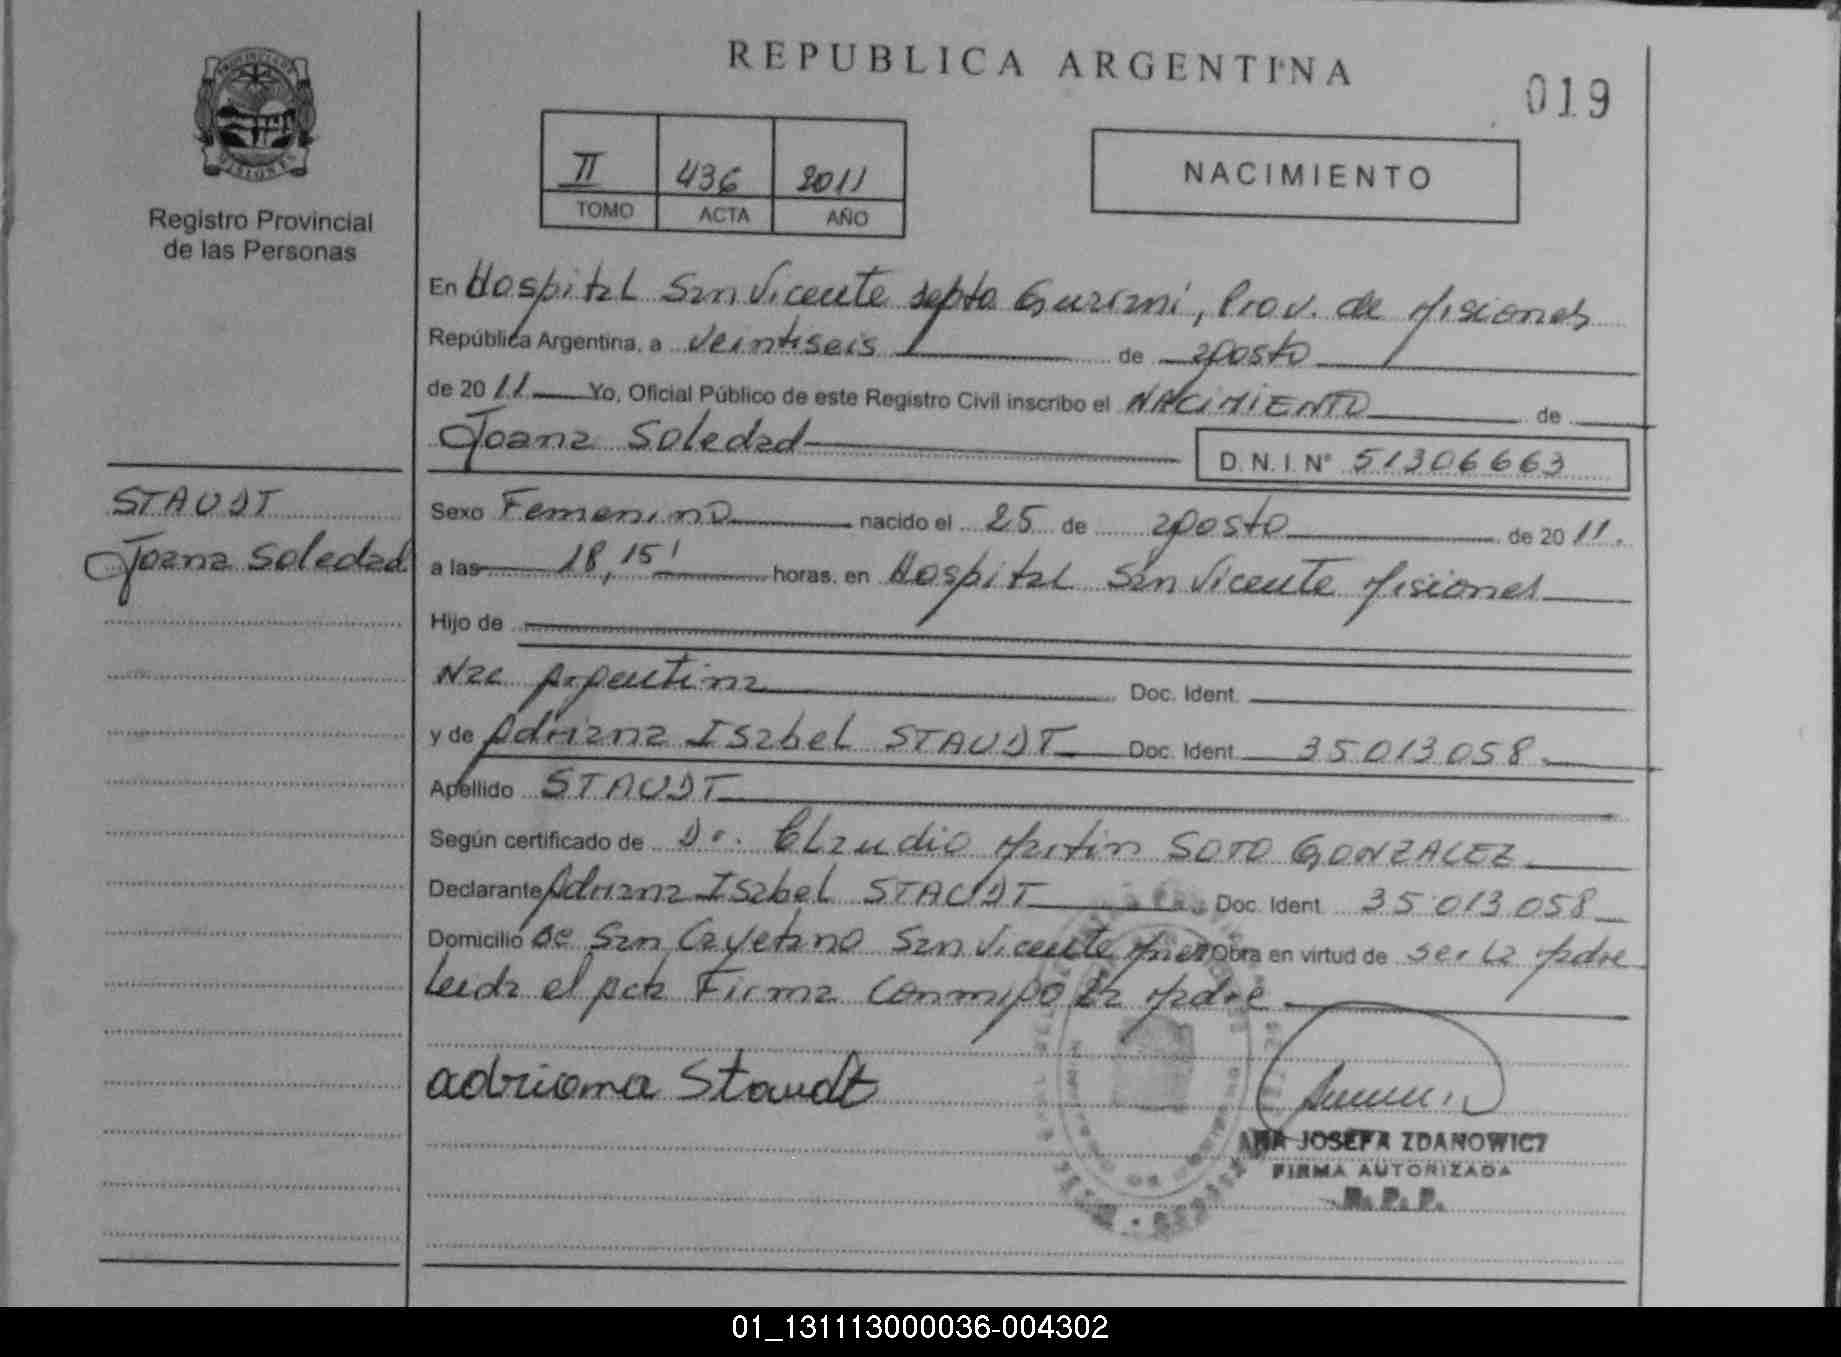 REPUBLICA ARGENTINA
019
PROVINCIA DE MISIONES
Registro Provincial
de las Personas
II 436 2011
TOMO ACTA AÑO
NACIMIENTO
En Hospital San Vicente depto Guarani, Prov. de Misiones
República Argentina, a veintiseis de agosto
de 2011 Yo, Oficial Público de este Registro Civil inscribo el NACIMIENTO de
Joana Soledad D.N.I. Nº 51306663
STAUDT
Joana Soledad
Sexo Femenino nacido el 25 de agosto de 2011.
a las 18,15' horas, en Hospital San Vicente Misiones
Hijo de
Nac Argentina Doc. Ident.
y de Adriana Isabel STAUDT Doc. Ident. 35013058.
Apellido STAUDT
Según certificado de Dr. Claudio Martin SOTO GONZALEZ
Declarante Adriana Isabel STAUDT Doc. Ident. 35013058
Domicilio San Cayetano San Vicente Obra en virtud de ser la Madre
Leida el acta Firma conmigo la Madre
adriana Staudt
ANA JOSEFA ZDANOWICZ
FIRMA AUTORIZADA
R.P.P.
01_131113000036-004302